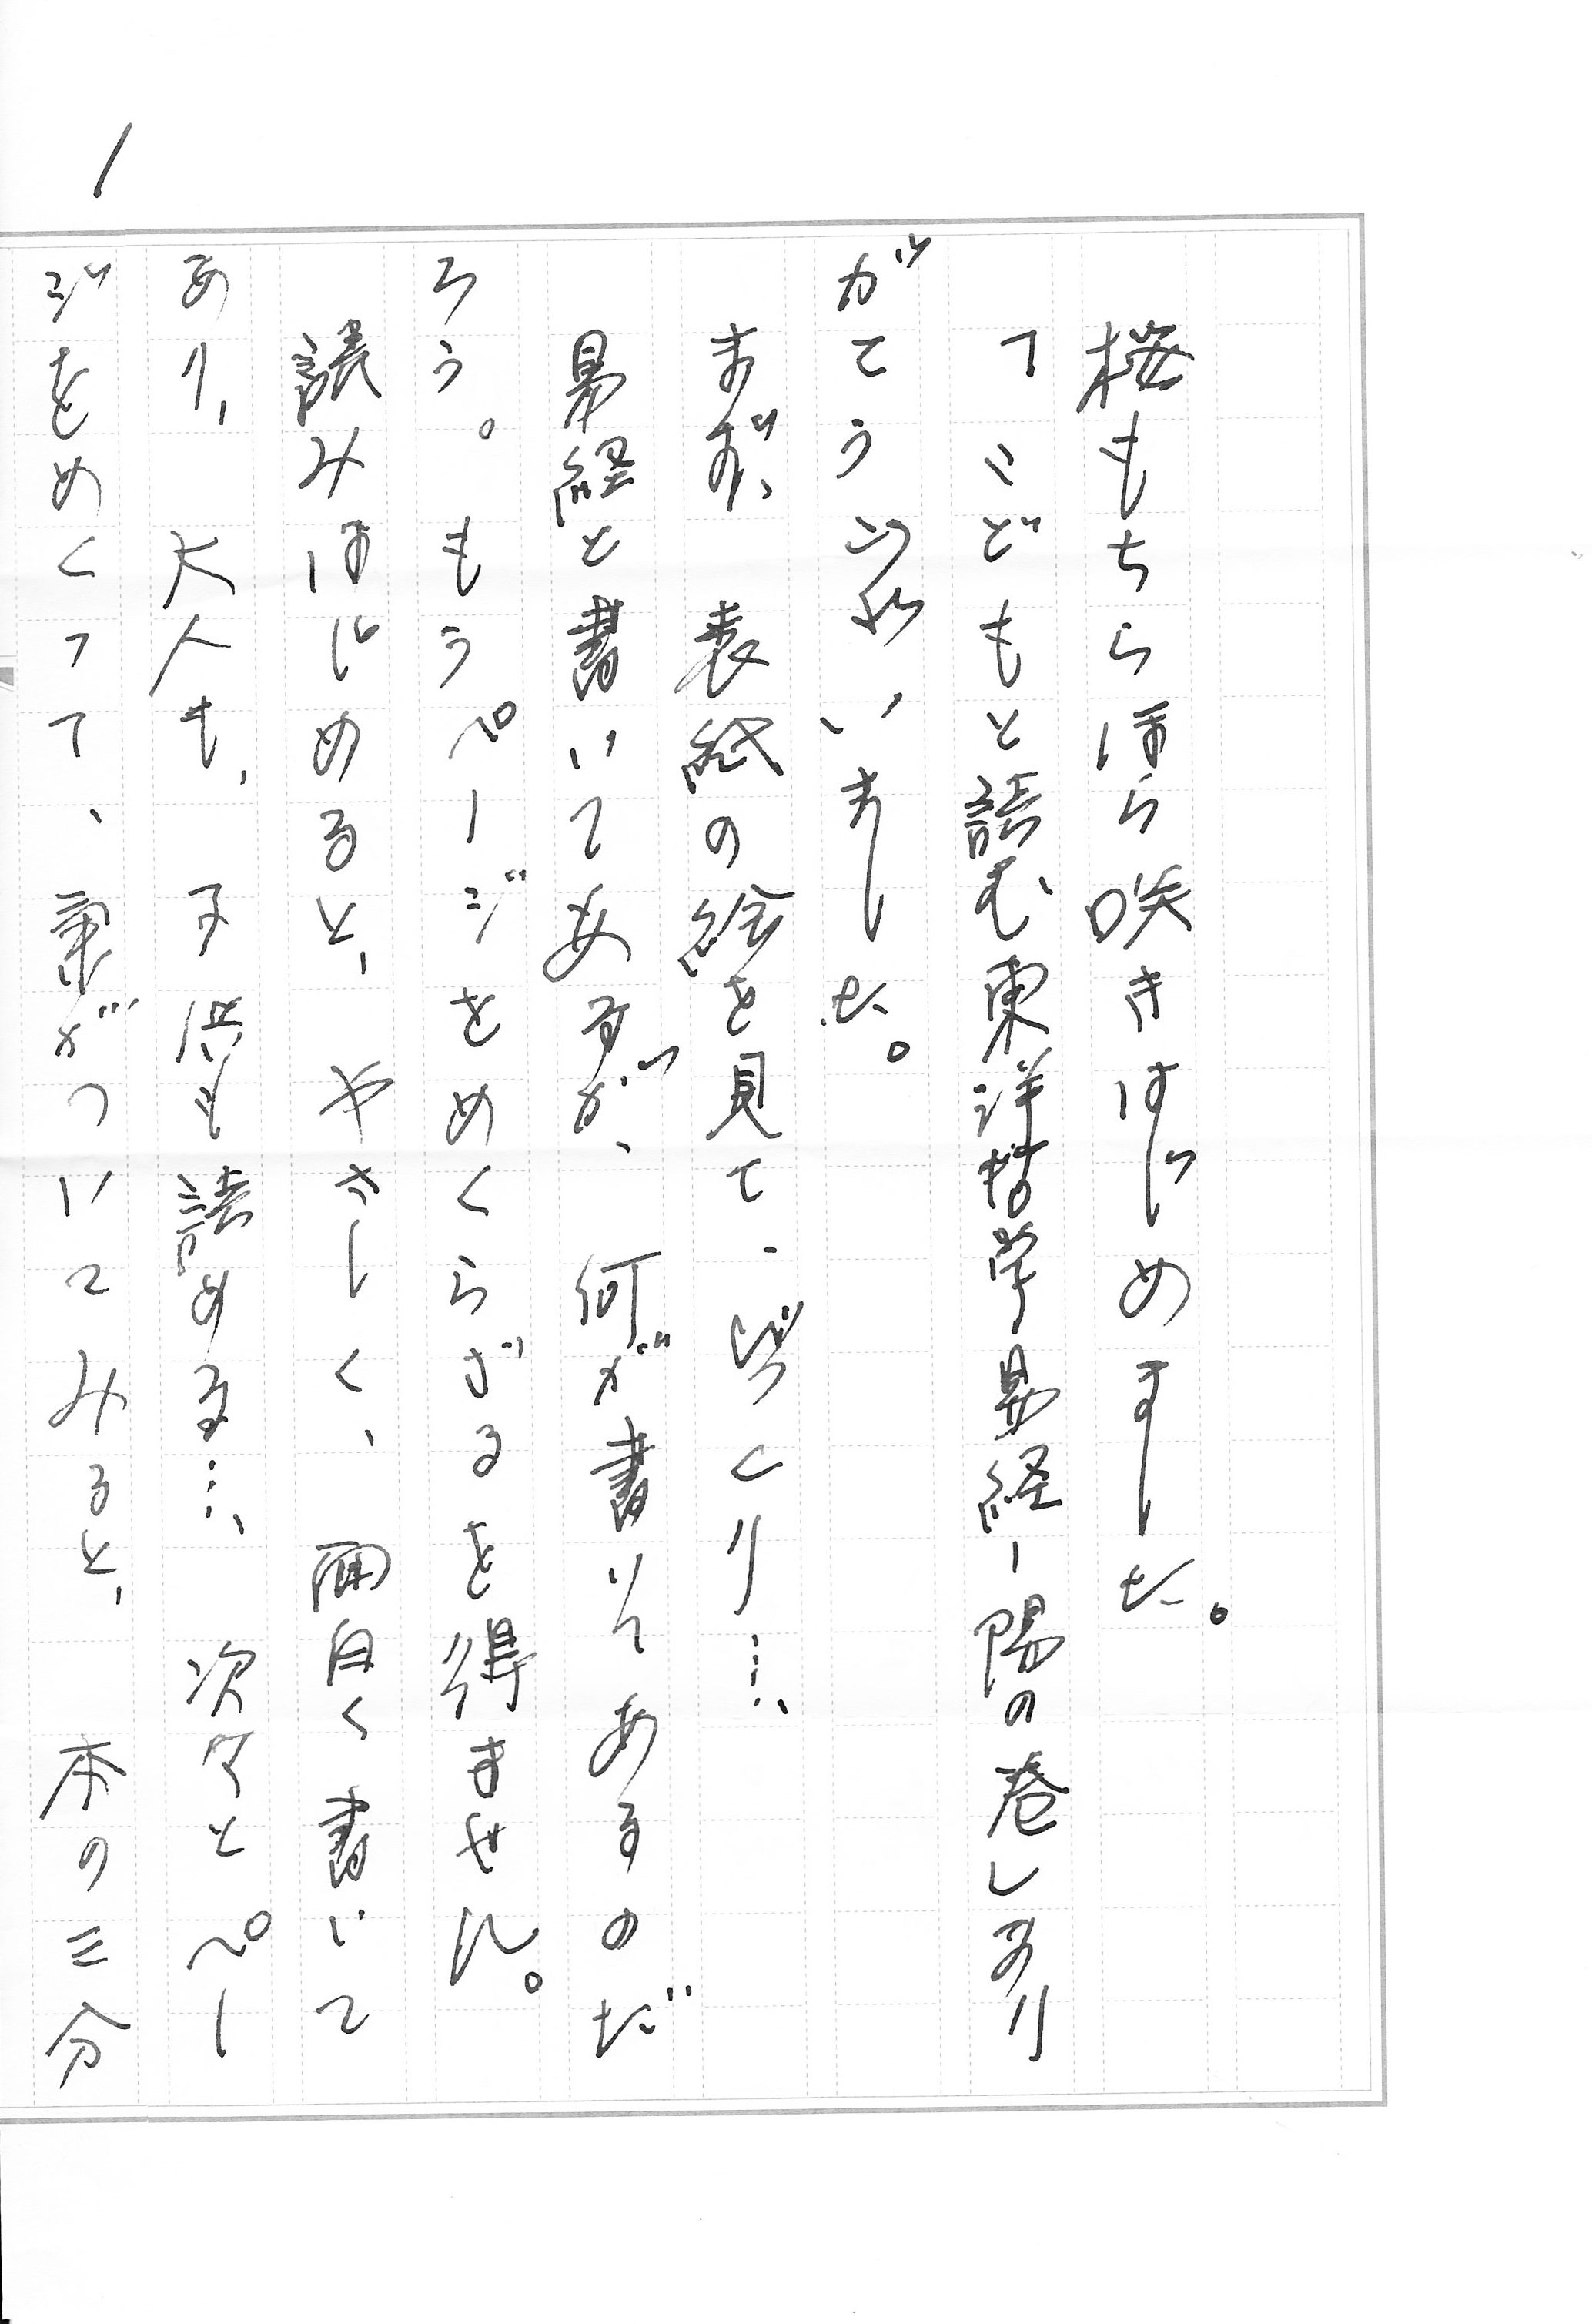 1
桜もちらほら咲きはじめました。
「こどもと読む東洋哲学易経ー陽の巻」あり
がとうございました。
まず、表紙の絵を見て、びっくり…、
易経と書いてあるが、何が書いてあるのだ
ろう。もうページをめくらざるを得ません。
読みはじめると、やさしく、面白く書いて
あり、大人も、子供も読める…、次々とペー
ジをめくって、気がついてみると、本の三分